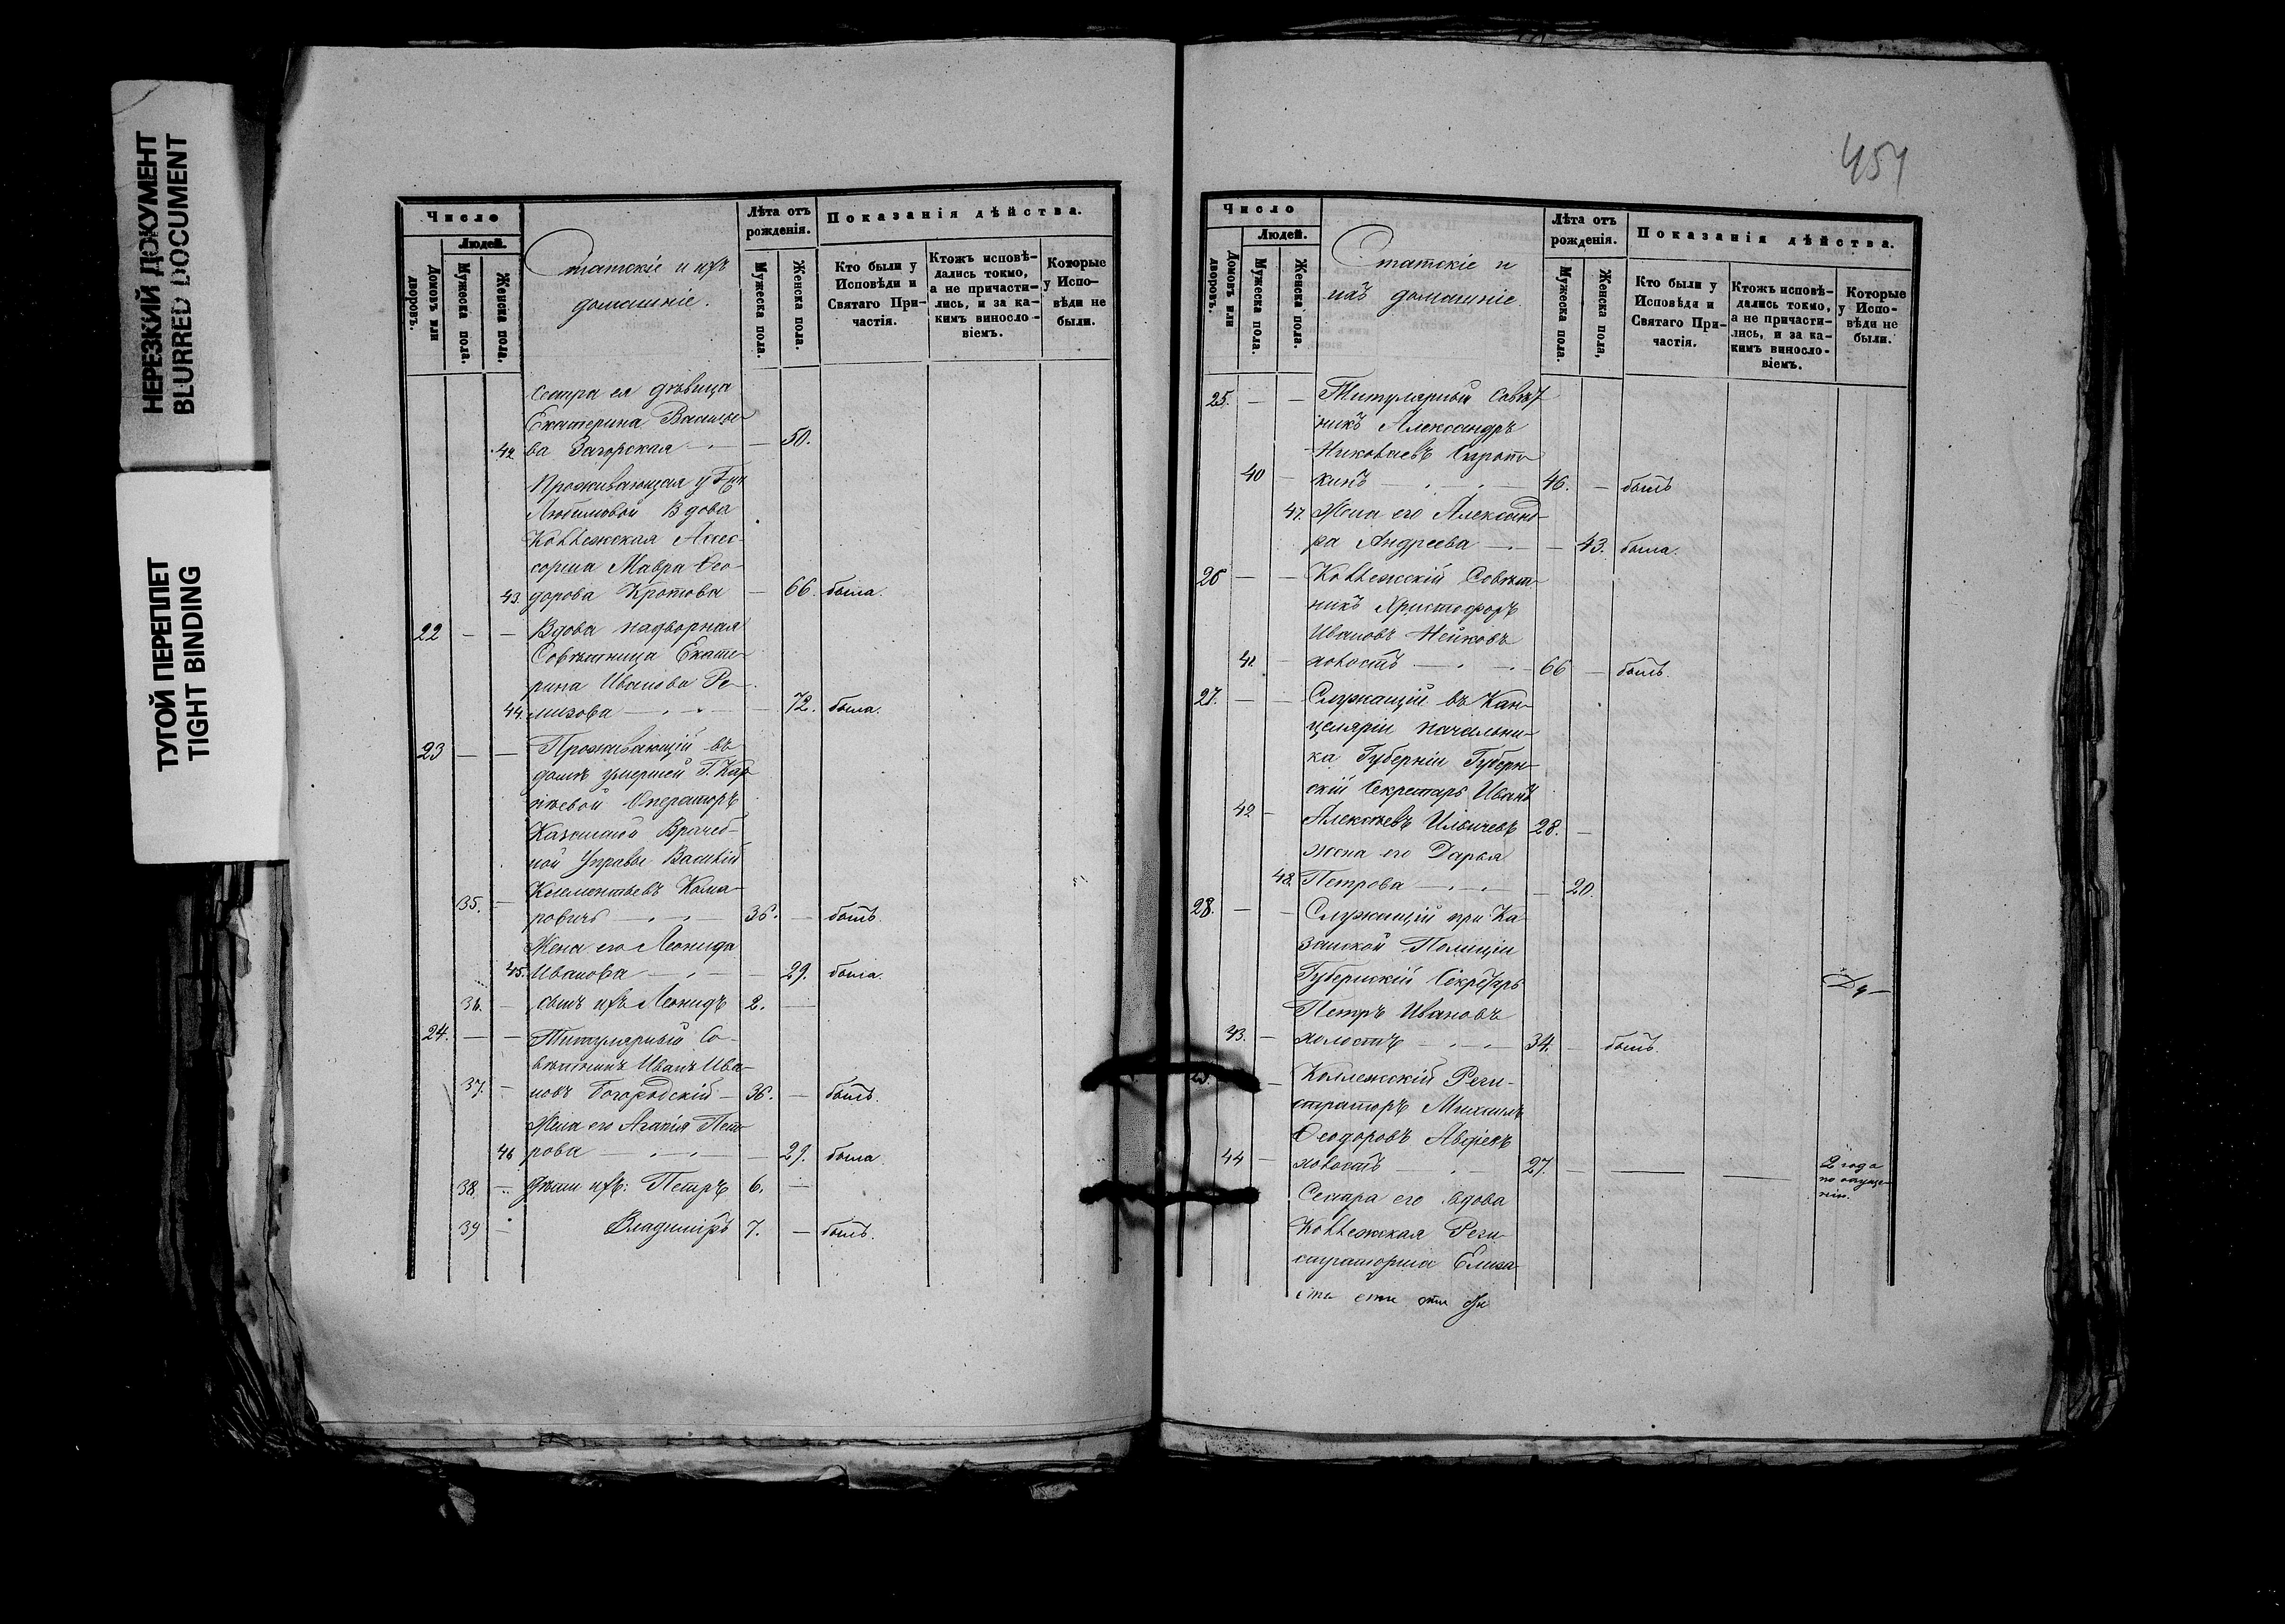 НЕРЕЗКИЙ ДОКУМЕНТ
BLURRED DOCUMENT
ТУГОЙ ПЕРЕПЛЕТ
TIGHT BINDING
Число
Людей.
Домовъ или дворовъ.
Мужеска пола.
Женска пола.
Статскіе и ихъ
домашніе.
Лѣта отъ
рожденія.
Мужеска пола.
Женска пола.
Показанія дѣйства.
Кто были у
Исповѣди и
Святаго При-
частія.
Ктожъ исповѣ-
дались токмо,
а не причасти-
лись, и за ка-
кимъ виносло-
віемъ.
Которые
у Испо-
вѣди не
были.
Сестра ея дѣвица
Екатерина Василье-
42 ва Загорская — 50.
Проживающая у Г-жи
Любимовой Вдова
Коллежская Ассес-
сорша Мавра Ѳео-
43. дорова Кротова — 66. была.
22 — — Вдова надворная
Совѣтница Екате-
рина Иванова Ре-
44. мизова — 72. была.
23 — — Проживающій въ
домѣ умершей Г. Кар-
пѣевой Операторъ
Казанской Врачеб-
ной Управы Василій
Клементьевъ Кома-
35. — ровичъ — 36. — былъ.
Жена его Леонида
45. Иванова — 29. была.
36. — сынъ ихъ Леонидъ 2. —
24. — — Титулярный Со-
вѣтникъ Иванъ Ива-
37. — новъ Богородскій — 36. — былъ.
Жена его Агапія Пет-
46 рова — 29. была
38. — дѣти ихъ: Петръ 6. —
39 — Владиміръ 7. — былъ.
454
Число
Людей.
Домовъ или дворовъ.
Мужеска пола.
Женска пола.
Статскіе и
ихъ домашніе.
Лѣта отъ
рожденія.
Мужеска пола.
Женска пола,
Показанія дѣйства.
Кто были у
Исповѣди и
Святаго При-
частія.
Ктожъ исповѣ-
дались токмо,
а не причасти-
лись, и за ка-
кимъ виносло-
віемъ.
Которые
у Испо-
вѣди не
были.
25. — — Титулярный Совѣт-
никъ Александръ
Николаевъ
40 — кинъ — 46. — былъ
47. Жена его Александ-
ра Андреева — 43. была.
26 — — Коллежскій Совѣт-
никъ Христофоръ
Ивановъ Нейковъ
41 — холостъ — 66 — былъ.
27. — — Служащій въ Кан-
целяріи Начальни-
ка Губерніи Губерн-
скій Секретарь Иванъ
42 — Алексѣевъ Ильичевъ 28. —
жена его Дарья
48. Петрова — 20.
28. — — Служащій при Ка-
занской Полиціи
Губернскій Секретарь
Петръ Ивановъ
43. — холостъ — 34. — былъ.
— Коллежскій Реги-
страторъ Михаилъ
Ѳеодоровъ Авдіевъ
44 — холостъ — 27. — —
2 года
по опуще-
нію.
Сестра его вдова
Коллежская Реги-
страторша Елиза-